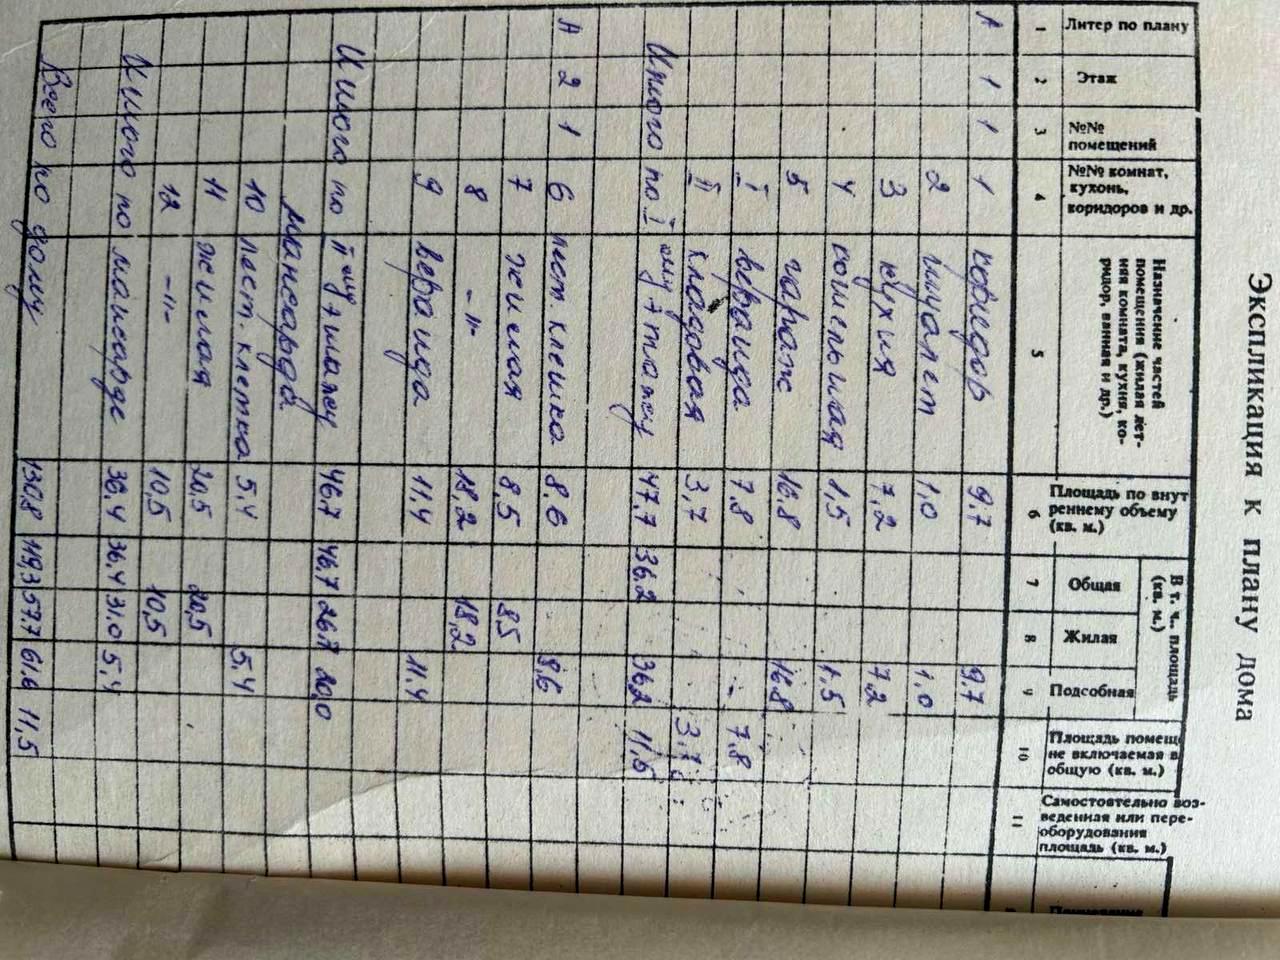 Экспликация к плану дома
Литер по плану
Этаж
№№ помещений
№№ комнат, кухонь, коридоров и др.
Назначение частей помещения (жилая летняя комната, кухня, коридор, ванная и др.)
Площадь по внутреннему объему (кв. м.)
В т. ч. площадь (кв. м.)
Общая
Жилая
Подсобная
Площадь помещ не включаемая в общую (кв. м.)
Самостоятельно возведенная или переоборудования площадь (кв. м.)
1 2 3 4 5 6 7 8 9 10 11
А 1 1 1 коридор 9,7 9,7
2 туалет 1,0 1,0
3 кухня 7,2 7,2
4 котельная 1,5 1,5
5 гараж 16,8 16,8
I веранда 7,8 7,8
II кладовая 3,7 3,7
Итого по I ому этажу 47,7 36,2 36,2 11,5
А 2 1 6 лест. клетка 8,6 8,6
7 жилая 8,5 8,5
8 -"- 18,2 18,2
9 веранда 11,4 11,4
Итого по II му этажу 46,7 46,7 26,7 20,0
мансарда
10 лест. клетка 5,4 5,4
11 жилая 20,5 20,5
12 -"- 10,5 10,5
Итого по мансарде 36,4 36,4 31,0 5,4
Всего по дому 130,8 119,3 57,7 61,6 11,5